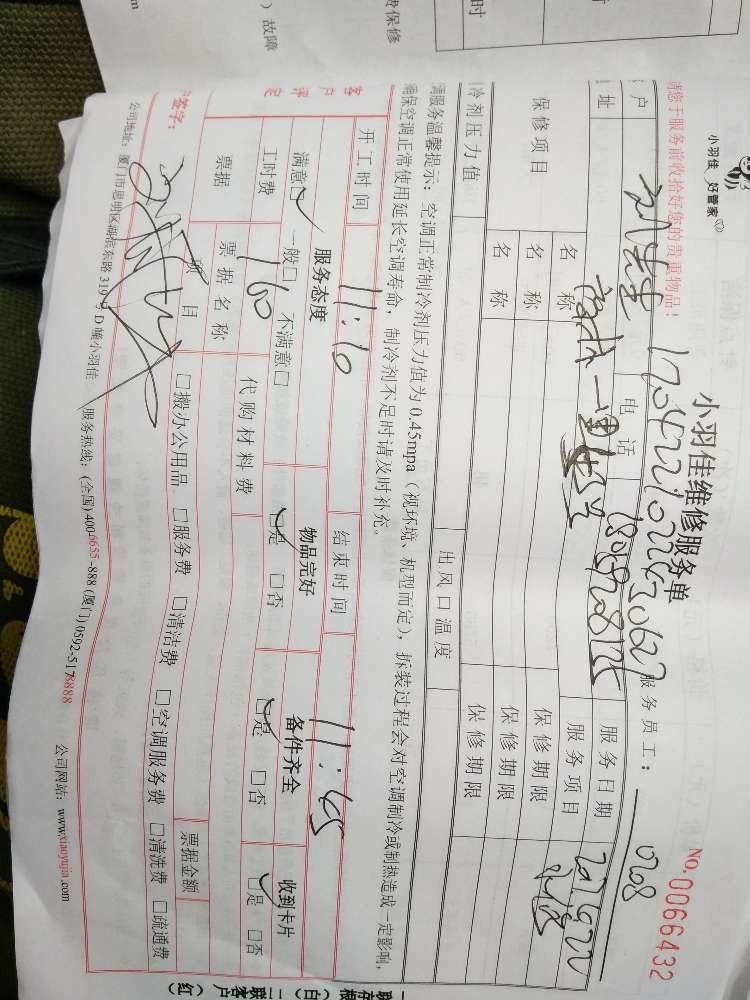 小羽佳 好管家
小羽佳维修服务单
No.0066432
请您于服务前收拾好您的贵重物品！
服务员工：
0708
户
电话
服务日期
址
服务项目
保修项目
名称
保修期限
名称
保修期限
名称
保修期限
冷剂压力值
出风口温度
调服务温馨提示：空调正常制冷剂压力值为0.45mpa（视环境、机型而定），拆装过程会对空调制冷或制热造成一定影响，
确保空调正常使用延长空调寿命，制冷剂不足时请及时补充。
开工时间
11:10
结束时间
11:45
客户评定
服务态度
物品完好
备件齐全
收到卡片
满意□ 一般□ 不满意□
□是 □否
□是 □否
□是 □否
工时费
160
代购材料费
票据
票据名称
票据金额
项目
□搬办公用品 □服务费 □清洁费 □空调服务费 □清洗费 □疏通费
签字：
公司地址：厦门市思明区湖滨东路319号D幢小羽佳
服务热线：(全国)4006655-888 (厦门)0592-5178888
公司网站：www.xiaoyujia.com
）故障
费保修
时
m